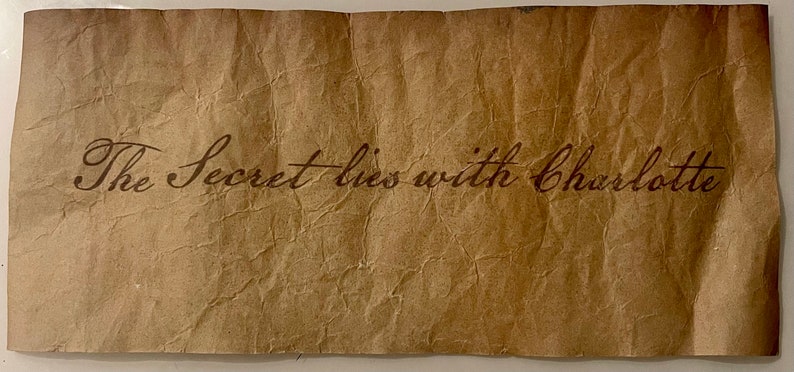 The Secret lies with Charlotte